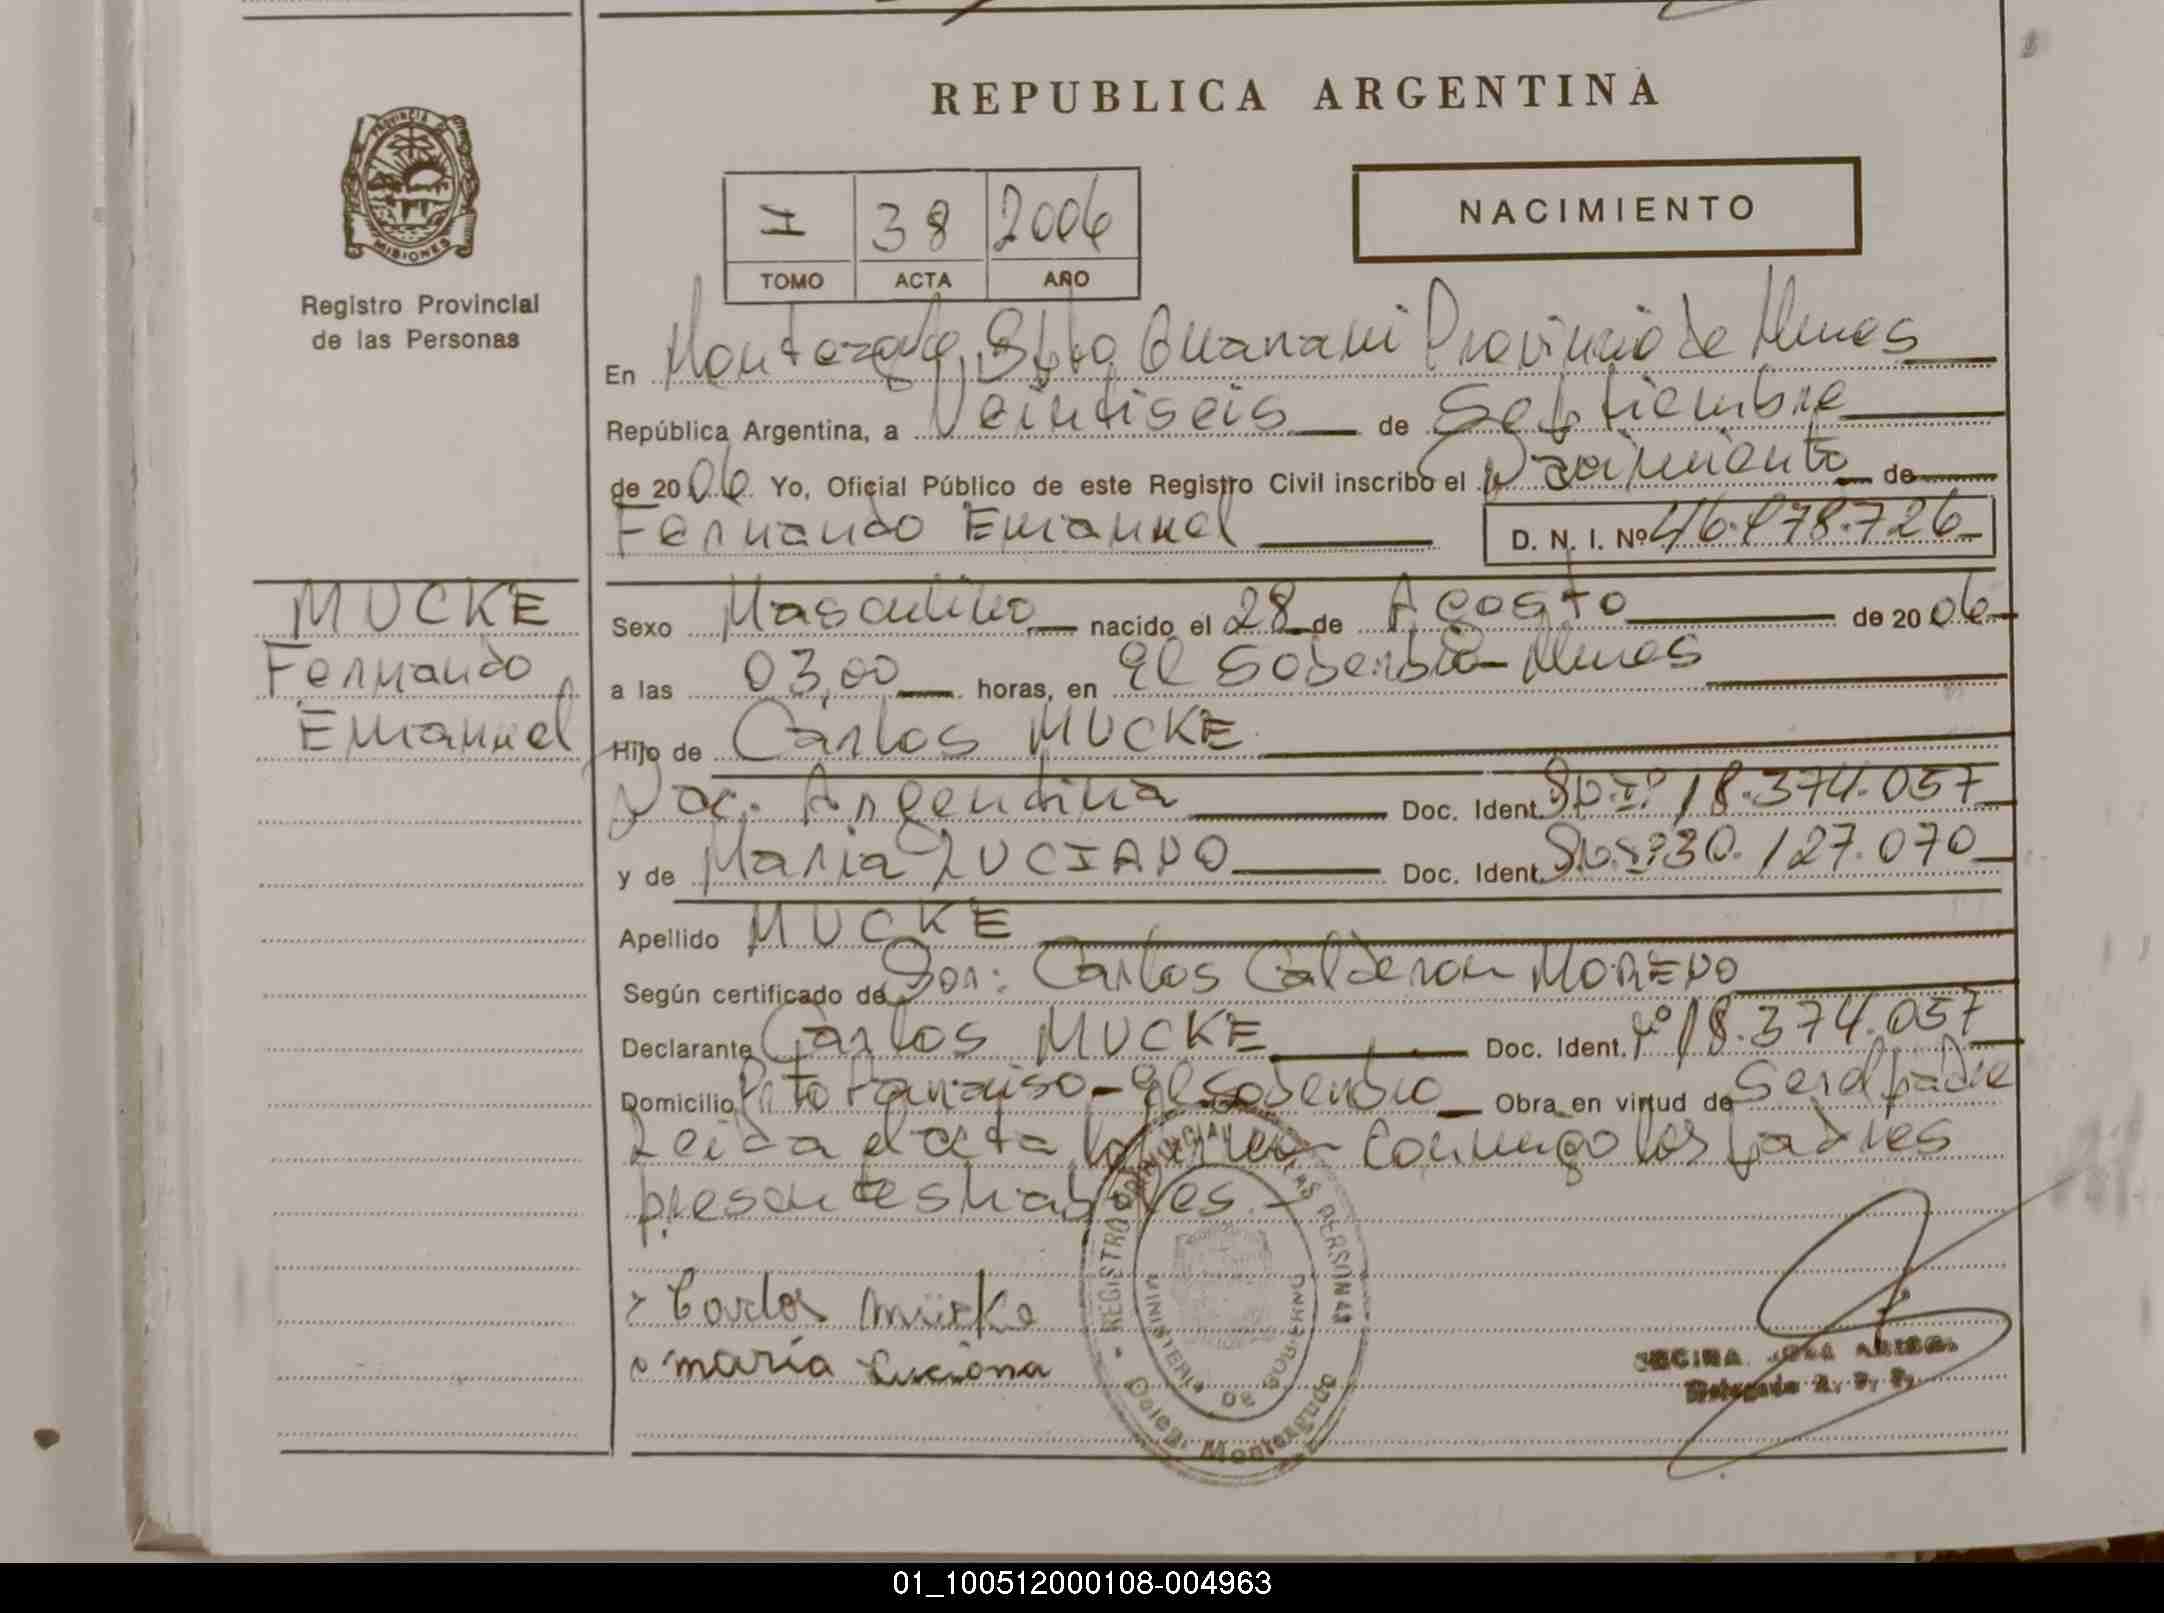 REPUBLICA ARGENTINA
PROVINCIA DE
MISIONES
Registro Provincial
de las Personas
I 38 2006
TOMO ACTA AÑO
NACIMIENTO
En Monteagudo, Dpto Guarani Provincia de Mnes
República Argentina, a Veintiseis de Septiembre
de 2006 Yo, Oficial Público de este Registro Civil inscribo el Nacimiento de
Fernando Emanuel D. N. I. Nº
MUCKE
Fernando
Emanuel
Sexo Masculino nacido el 28 de Agosto de 2006
a las 03,00 horas, en El Soberbio - Mnes
Hijo de Carlos MUCKE
Nac. Argentina Doc. Ident. 18.374.057
y de Maria LUCIANO Doc. Ident. 30.127.070
Apellido MUCKE
Según certificado de Dor: Carlos Calderon MORENO
Declarante Carlos MUCKE Doc. Ident. Nº 18.374.057
Domicilio Pto Paraiso - El Soberbio Obra en virtud de Ser el padre
Leida el acta la firman conmigo los padres
presentes habiles.-
Carlos Mücke
maria Luciona
REGISTRO PROVINCIAL DE LAS PERSONAS
MINISTERIO DE GOBIERNO
Deleg. Monteagudo
Delegada R. P. P.
01_100512000108-004963